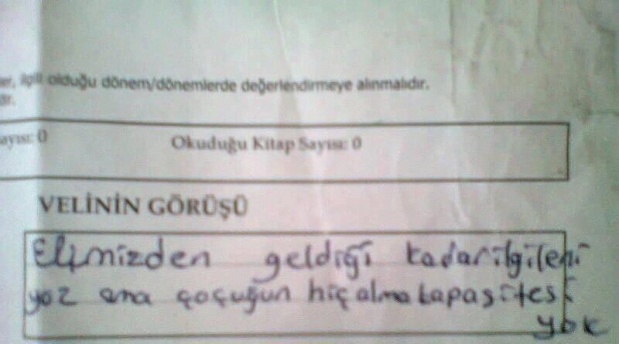 ilgili olduğu dönem/dönemlerde değerlendirmeye alınmalıdır.
dır.
ayısı: 0 Okuduğu Kitap Sayısı: 0
VELİNİN GÖRÜŞÜ
Elimizden geldiği kadar ilgileni
yoz ama çoçuğun hiç alma kapasitesi
yok